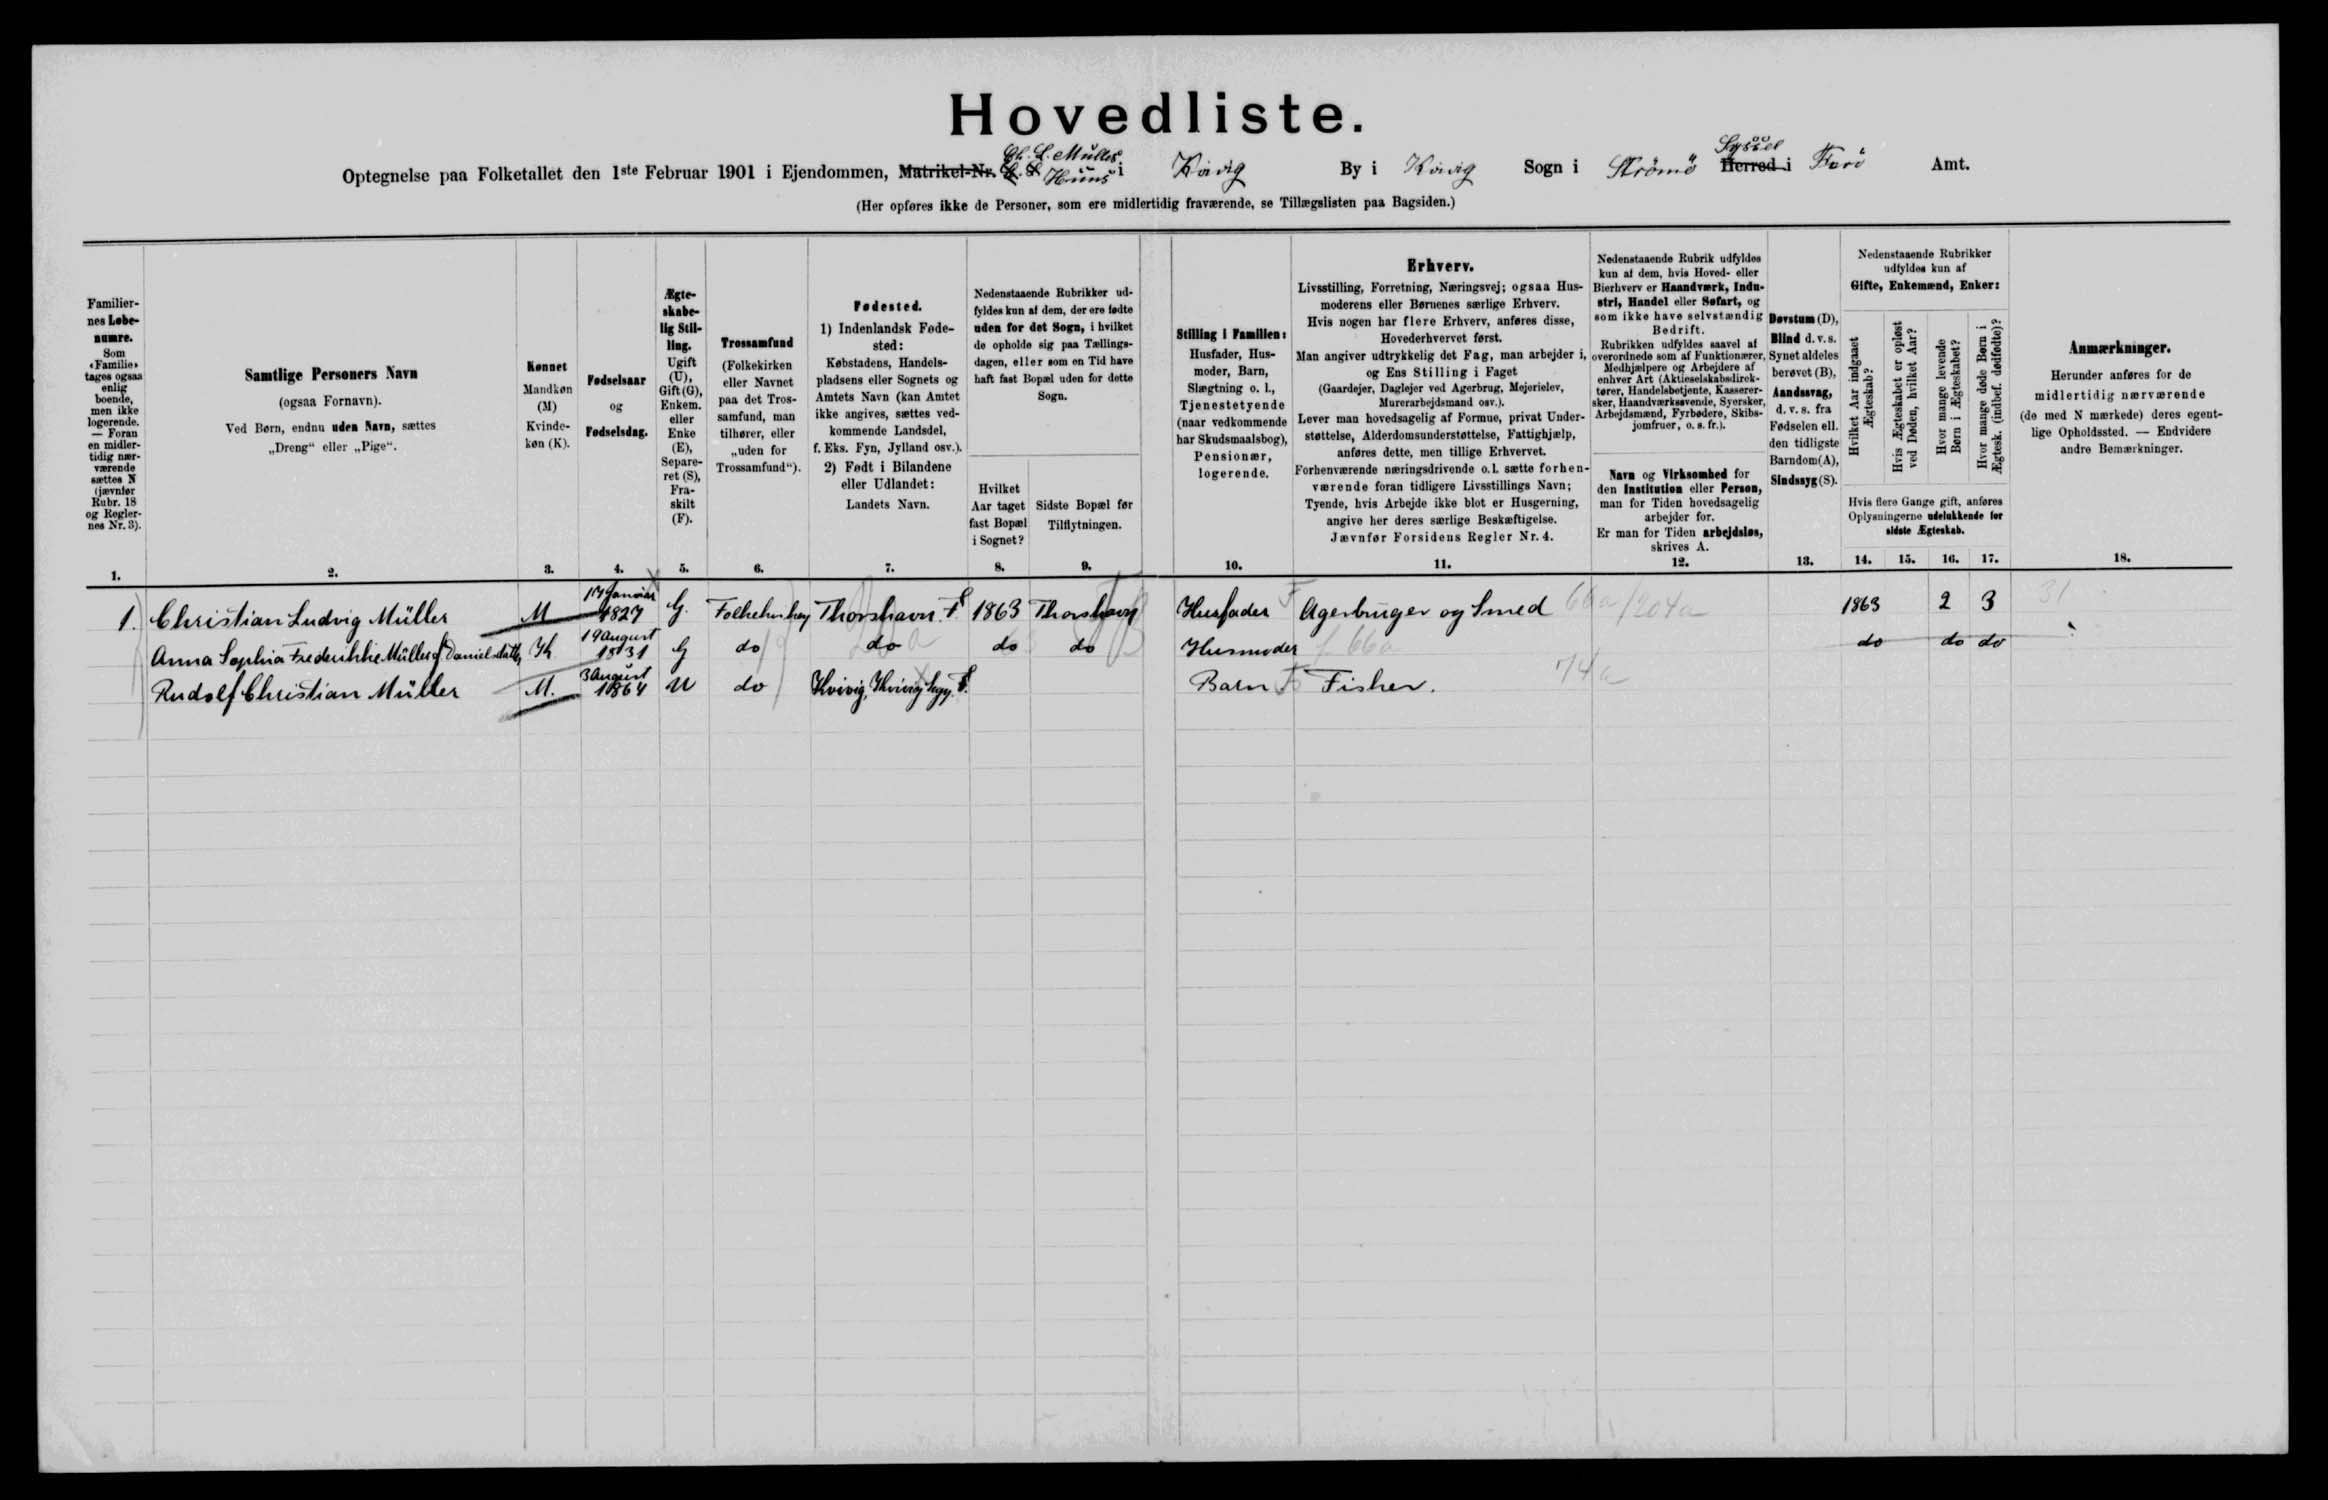 Hovedliste.
Optegnelse paa Folketallet den 1ste Februar 1901 i Ejendommen, Matrikel-Nr. Ch. L. Müllers Huus i Kvivig By i Kvivig Sogn i Strömö Herred Syssel i Farö Amt.
(Her opføres ikke de Personer, som ere midlertidig fraværende, se Tillægslisten paa Bagsiden.)
Familier-
nes Løbe-
numre.
Som
«Familie»
tages ogsaa
enlig
boende,
men ikke
logerende.
— Foran
en midler-
tidig nær-
værende
sættes N
(jævnfør
Rubr. 18
og Regler-
nes Nr. 3).
1.
Samtlige Personers Navn
(ogsaa Fornavn).
Ved Børn, endnu uden Navn, sættes
„Dreng“ eller „Pige“.
2.
Kønnet
Mandkøn
(M)
Kvinde-
køn (K).
3.
Fødselsaar
og
Fødselsdag.
4.
Ægte-
skabe-
lig Stil-
ling.
Ugift
(U),
Gift (G),
Enkem.
eller
Enke
(E),
Separe-
ret (S),
Fra-
skilt
(F).
5.
Trossamfund
(Folkekirken
eller Navnet
paa det Tros-
samfund, man
tilhører, eller
„uden for
Trossamfund“).
6.
Fødested.
1) Indenlandsk Føde-
sted:
Købstadens, Handels-
pladsens eller Sognets og
Amtets Navn (kan Amtet
ikke angives, sættes ved-
kommende Landsdel,
f. Eks. Fyn, Jylland osv.).
2) Født i Bilandene
eller Udlandet:
Landets Navn.
7.
Nedenstaaende Rubrikker ud-
fyldes kun af dem, der ere fødte
uden for det Sogn, i hvilket
de opholde sig paa Tællings-
dagen, eller som en Tid have
haft fast Bopæl uden for dette
Sogn.
Hvilket
Aar taget
fast Bopæl
i Sognet?
8.
Sidste Bopæl før
Tilflytningen.
9.
Stilling i Familien:
Husfader, Hus-
moder, Barn,
Slægtning o. l.,
Tjenestetyende
(naar vedkommende
har Skudsmaalsbog),
Pensionær,
logerende.
10.
Erhverv.
Livsstilling, Forretning, Næringsvej; ogsaa Hus-
moderens eller Børnenes særlige Erhverv.
Hvis nogen har flere Erhverv, anføres disse,
Hovederhvervet først.
Man angiver udtrykkelig det Fag, man arbejder i,
og Ens Stilling i Faget
(Gaardejer, Daglejer ved Agerbrug, Mejerielev,
Murerarbejdsmand osv.).
Lever man hovedsagelig af Formue, privat Under-
støttelse, Alderdomsunderstøttelse, Fattighjælp,
anføres dette, men tillige Erhvervet.
Forhenværende næringsdrivende o. l. sætte forhen-
værende foran tidligere Livsstillings Navn;
Tyende, hvis Arbejde ikke blot er Husgerning,
angive her deres særlige Beskæftigelse.
Jævnfør Forsidens Regler Nr. 4.
11.
Nedenstaaende Rubrik udfyldes
kun af dem, hvis Hoved- eller
Bierhverv er Haandværk, Indu-
stri, Handel eller Søfart, og
som ikke have selvstændig
Bedrift.
Rubrikken udfyldes saavel af
overordnede som af Funktionærer,
Medhjælpere og Arbejdere af
enhver Art (Aktieselskabsdirek-
tører, Handelsbetjente, Kasserer-
sker, Haandværkssvende, Syersker,
Arbejdsmænd, Fyrbødere, Skibs-
jomfruer, o. s. fr.).
Navn og Virksomhed for
den Institution eller Person,
man for Tiden hovedsagelig
arbejder for.
Er man for Tiden arbejdsløs,
skrives A.
12.
Døvstum (D),
Blind d. v. s.
Synet aldeles
berøvet (B),
Aandssvag,
d. v. s. fra
Fødselen ell.
den tidligste
Barndom (A),
Sindssyg (S).
13.
Nedenstaaende Rubrikker
udfyldes kun af
Gifte, Enkemænd, Enker:
Hvilket Aar indgaaet
Ægteskab?
Hvis Ægteskabet er opløst
ved Døden, hvilket Aar?
Hvor mange levende
Børn i Ægteskabet?
Hvor mange døde Børn i
Ægtesk. (indbef. dødfødte)?
Hvis flere Gange gift, anføres
Oplysningerne udelukkende for
sidste Ægteskab.
14. 15. 16. 17.
Anmærkninger.
Herunder anføres for de
midlertidig nærværende
(de med N mærkede) deres egent-
lige Opholdssted. — Endvidere
andre Bemærkninger.
18.
1. Christian Ludvig Müller M 17 Januar 1827 G. Folkekirken Thorshavn F. 1863 Thorshavn Husfader F Agerbruger og Smed 66a/204a 1863 2 3 31
Anna Sophia Frederikke Müller f. Danielsdatter K 19 August 1831 G do do do do Husmoder f 66a do do do
Rudolf Christian Müller M. 3 August 1864 U do Kvivig, Kvivig Sogn F. Barn F Fisker. 74a